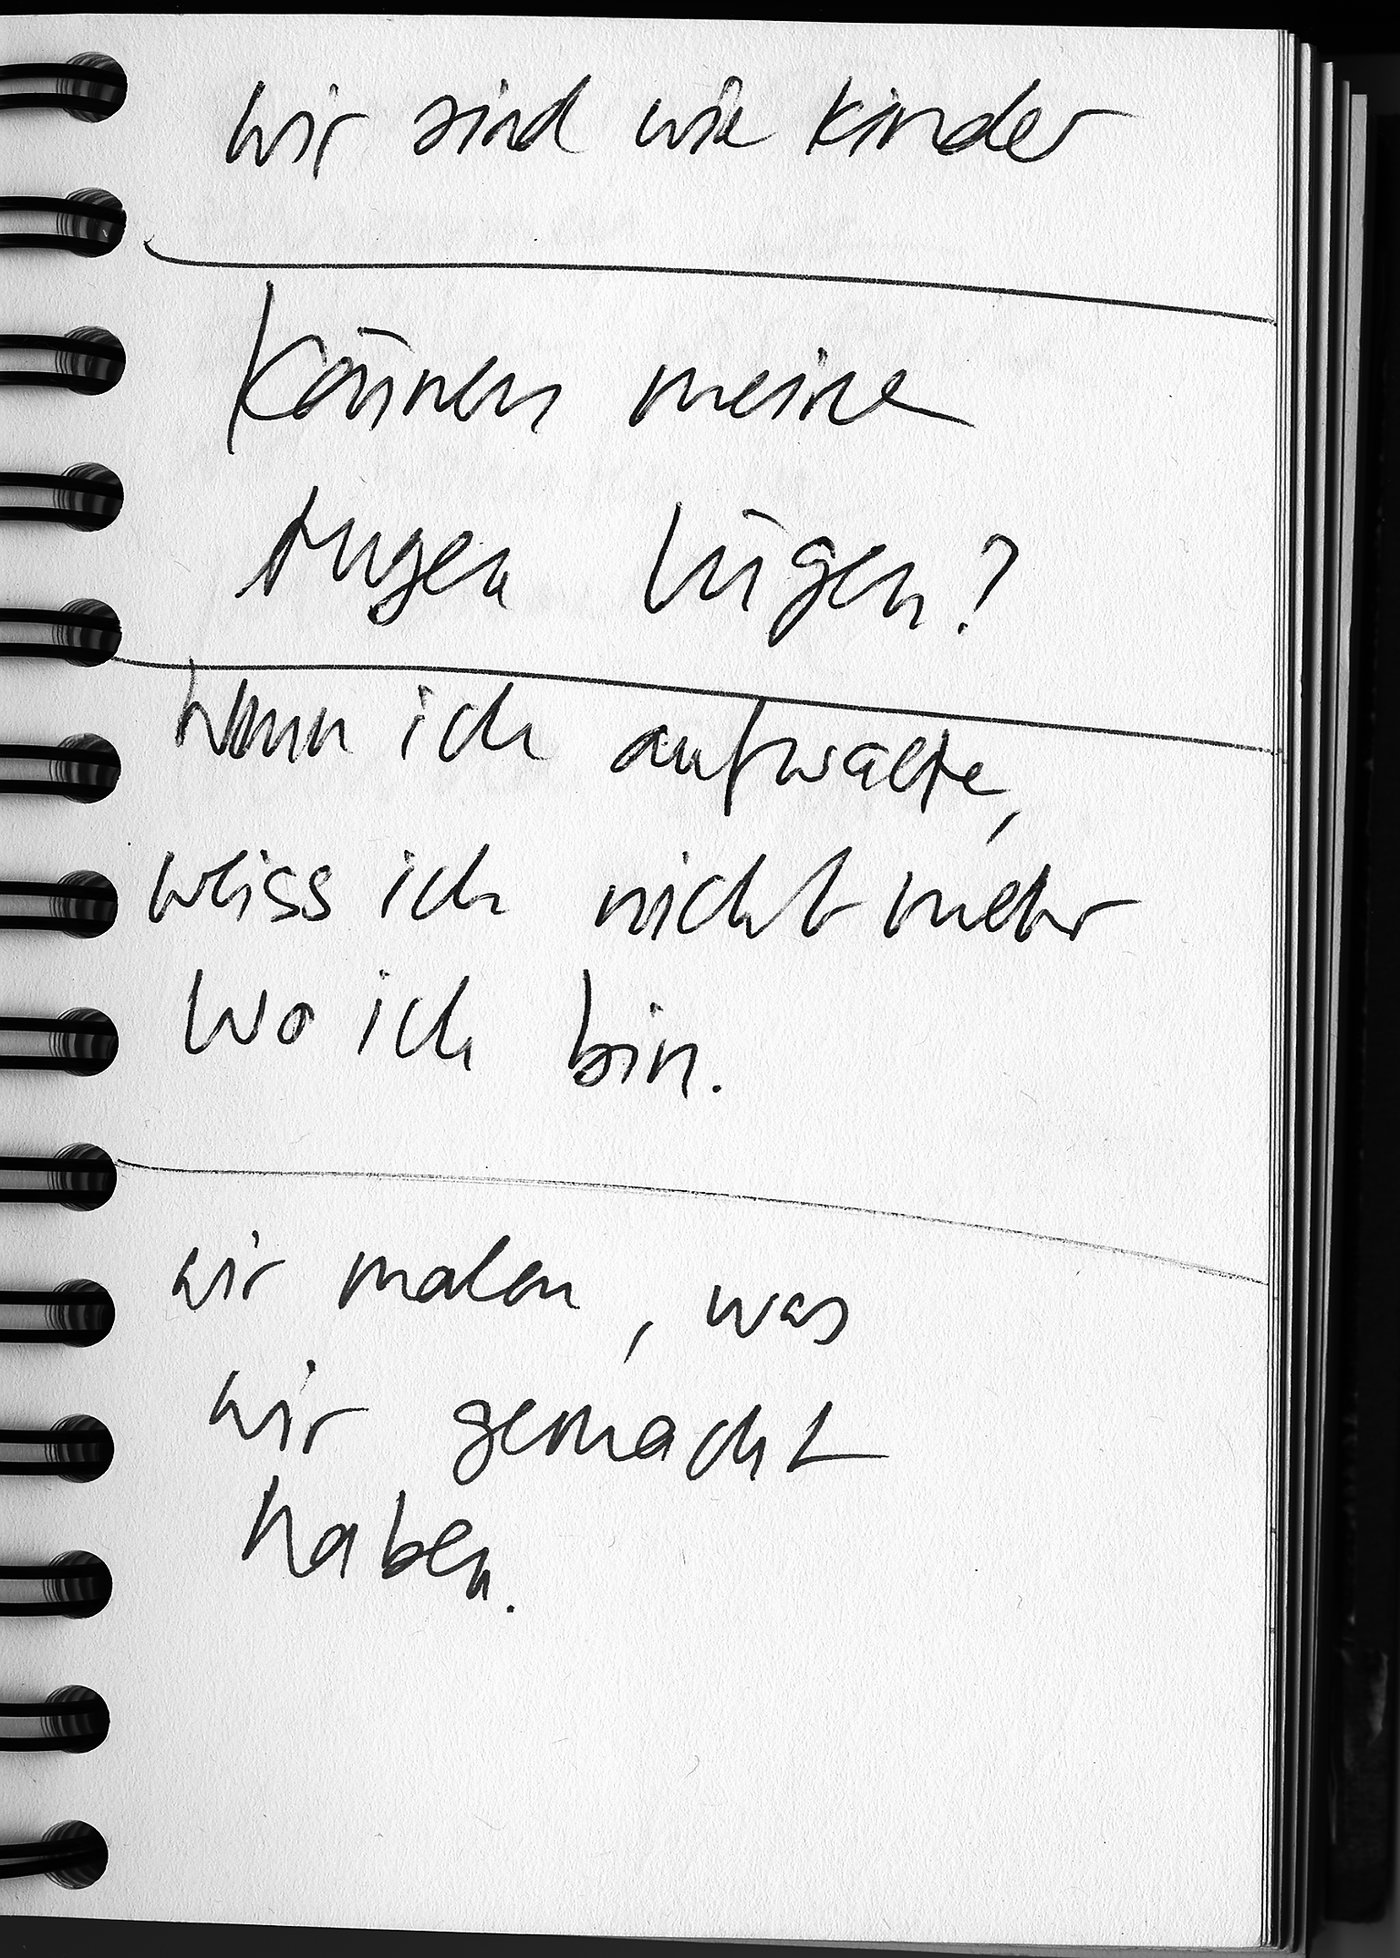 wir sind wie kinder
Können meine
Augen lügen?
Wenn ich aufwache,
weiss ich nicht mehr
wo ich bin.
wir malen, was
wir gemacht
haben.